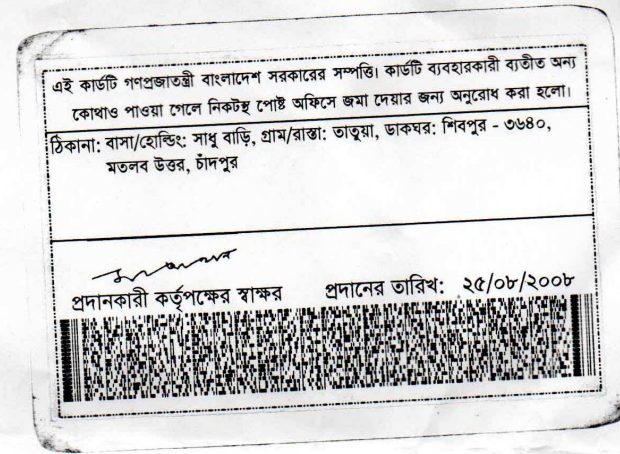 এই কার্ডটি গণপ্রজাতন্ত্রী বাংলাদেশ সরকারের সম্পত্তি। কার্ডটি ব্যবহারকারী ব্যতীত অন্য
কোথাও পাওয়া গেলে নিকটস্থ পোষ্ট অফিসে জমা দেয়ার জন্য অনুরোধ করা হলো।
ঠিকানা: বাসা/হোল্ডিং: সাধু বাড়ি, গ্রাম/রাস্তা: তাতুয়া, ডাকঘর: শিবপুর - ৩৬৪০,
মতলব উত্তর, চাঁদপুর
প্রদানকারী কর্তৃপক্ষের স্বাক্ষর প্রদানের তারিখ: ২৫/০৮/২০০৮